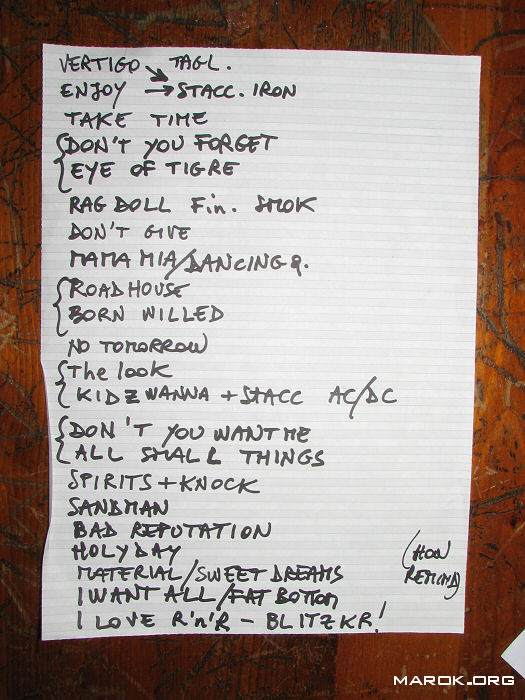 VERTIGO TAGL.
ENJOY → STACC. IRON
TAKE TIME
DON'T YOU FORGET
EYE OF TIGRE
RAG DOLL Fin. SMOK
DON'T GIVE
MAMA MIA/DANCING Q.
ROADHOUSE
BORN WILLED
NO TOMORROW
The look
KIDZ WANNA + STACC AC/DC
DON'T YOU WANT ME
ALL SMALL THINGS
SPIRITS + KNOCK
SANDMAN
BAD REPUTATION
HOLYDAY
MATERIAL/SWEET DREAMS
I WANT ALL/FAT BOTTOM
I LOVE R'n'R - BLITZKR!
(HON
REMIND)
MAROK.ORG